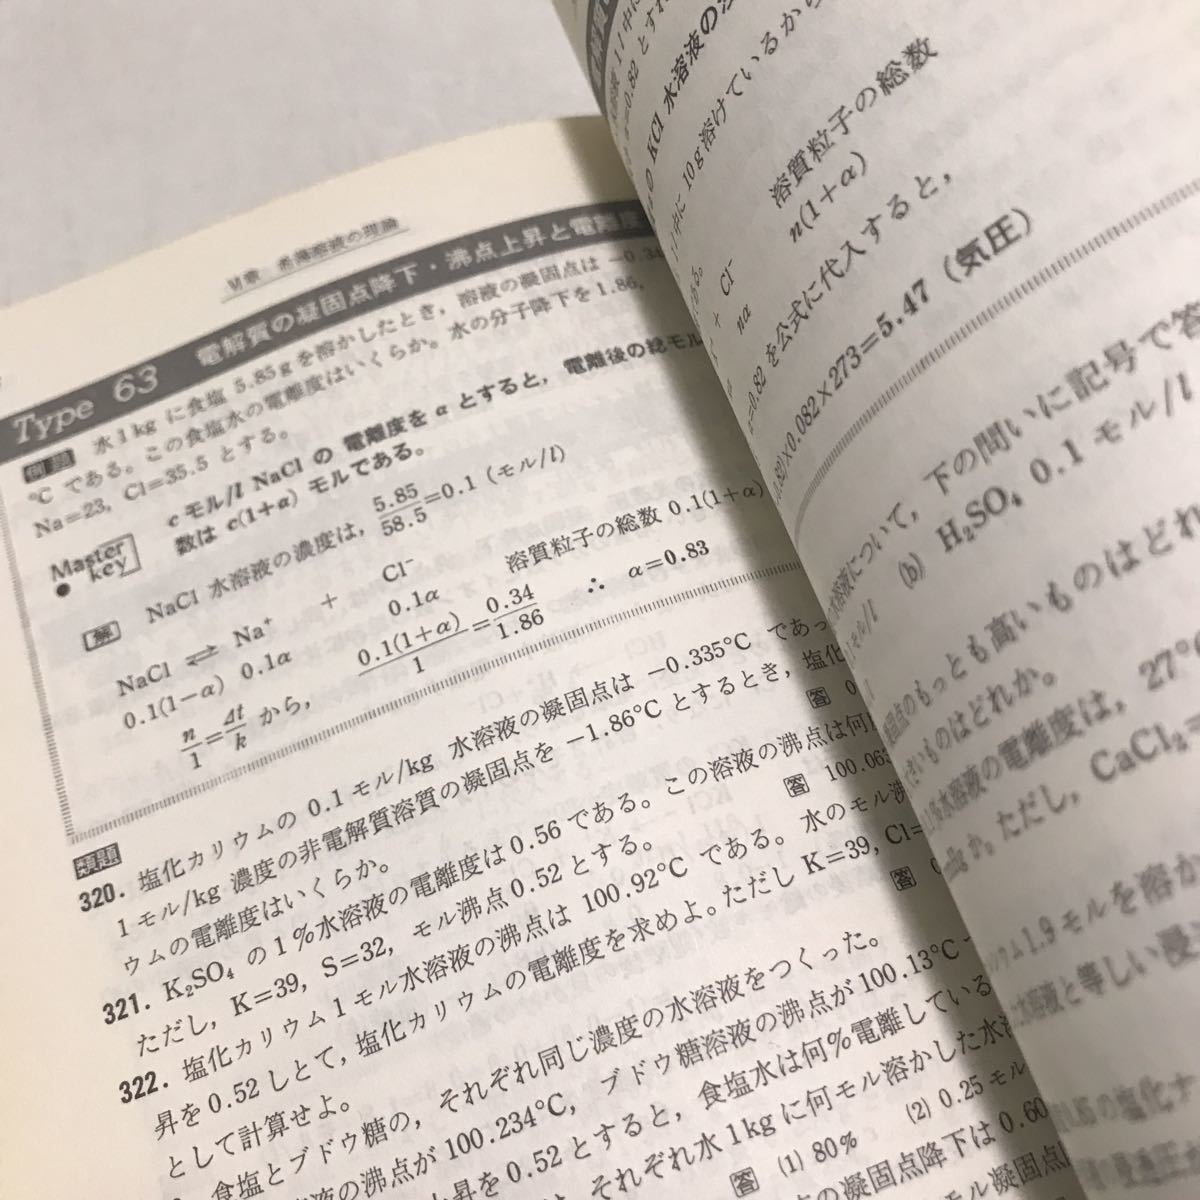 Ⅵ章 希薄溶液の理論
Type 63 電解質の凝固点降下・沸点上昇と電離度
例題 水1kgに食塩5.85gを溶かしたとき，溶液の凝固点は −0.34
°Cである。この食塩水の電離度はいくらか。水の分子降下を1.86，
Na=23, Cl=35.5 とする。
Master key
cモル/l NaCl の電離度をαとすると，電離後の総モル
数は c(1+α) モルである。
解 NaCl 水溶液の濃度は，5.85/58.5=0.1 (モル/l)
NaCl ⇌ Na⁺ + Cl⁻ 溶質粒子の総数 0.1(1+α)
0.1(1−α) 0.1α 0.1α
n/1=Δt/k から， 0.1(1+α)/1=0.34/1.86 ∴ α=0.83
類題
320. 塩化カリウムの 0.1モル/kg 水溶液の凝固点は −0.335°C であっ
1モル/kg 濃度の非電解質溶質の凝固点を −1.86°C とするとき，塩化
ウムの電離度はいくらか。 答 0
321. K₂SO₄ の1%水溶液の電離度は0.56である。この溶液の沸点は何
ただし，K=39, S=32, モル沸点0.52とする。 答 100.063
322. 塩化カリウム1モル水溶液の沸点は 100.92°C である。水のモル沸
昇を0.52しとて，塩化カリウムの電離度を求めよ。ただしK=39, Cl=
として計算せよ。 答 0
食塩とブドウ糖の，それぞれ同じ濃度の水溶液をつくった。
の沸点が100.234°C, ブドウ糖溶液の沸点が100.13°C
昇を0.52とすると，食塩水は何%電離している
それぞれ水1kgに何モル溶かした水溶
答 (1) 80% (2) 0.25モル
の凝固点降下は0.60
水溶液の
=0.82 とすれ
KCl 水溶液の
中に 10g 溶けているから
溶質粒子の総数
+ Cl⁻
nα n(1+α)
=0.82 を公式に代入すると，
×0.082×273=5.47 (気圧)
水溶液について，下の問いに記号で答
モル/l (b) H₂SO₄ 0.1モル/l
のもっとも高いものはどれ
さいものはどれか。
水溶液の電離度は，27°C
か。ただし，CaCl₂=
1.9モルを溶か
水溶液と等しい浸透
の塩化ナ